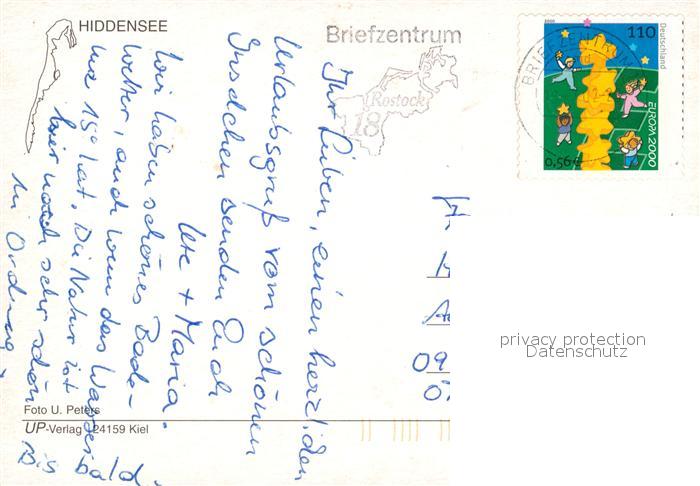 HIDDENSEE
Briefzentrum
Rostock
18
BRIEFZENTRUM
110
Deutschland
EUROPA 2000
0,56€
2000
Ihr Lieben, einen herzlichen
Urlaubsgruß vom schönen
Inselchen senden Euch
Ute + Maria.
Wir haben schönes Bade-
wetter, auch wenn das Wasser
nur 15° hat. Die Natur ist
hier noch sehr schön
in Ordnung.
Bis bald
09
Foto U. Peters
UP-Verlag 24159 Kiel
privacy protection
Datenschutz